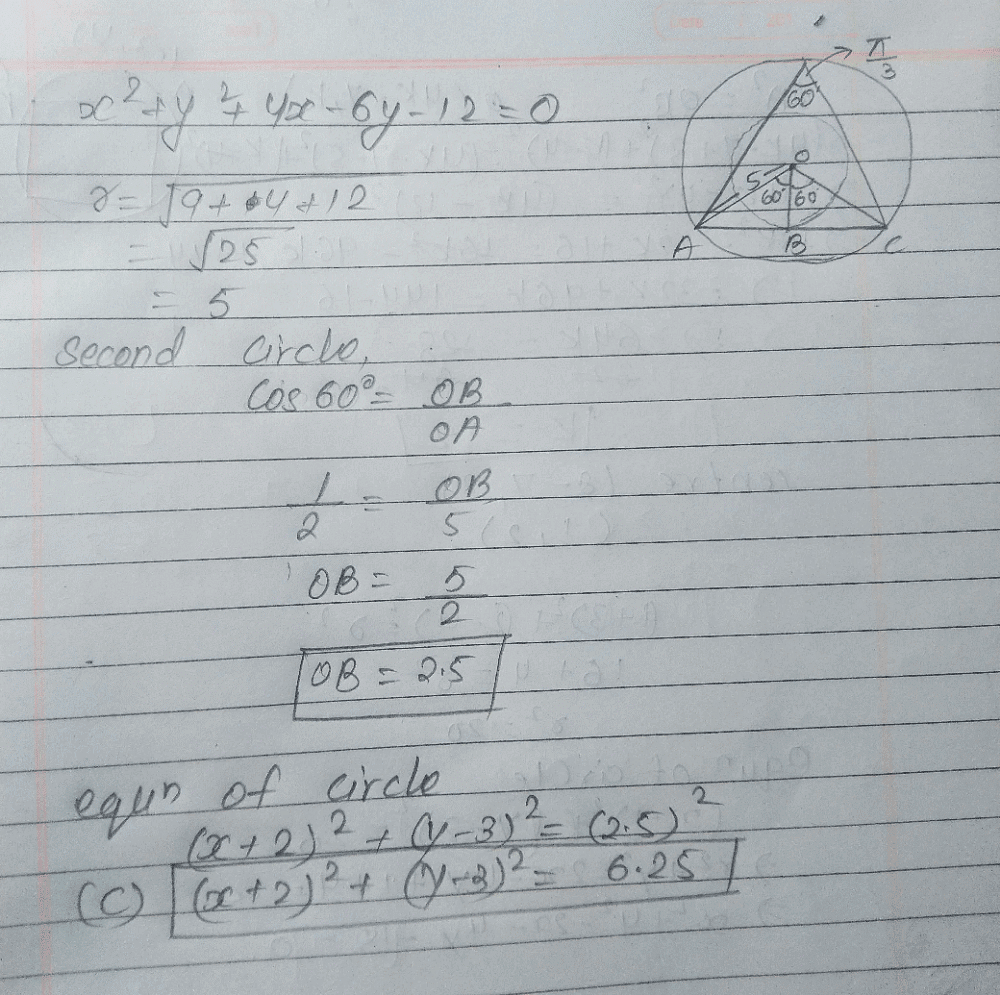 x² + y² + 4x - 6y - 12 = 0
r = √9 + 4 + 12
= √25
= 5
π/3
60°
O
5
60° 60
A B C
second circle,
Cos 60° = OB/OA
1/2 = OB/5
OB = 5/2
OB = 2.5
equⁿ of circle
(x+2)² + (y-3)² = (2.5)²
(C) (x+2)² + (y-3)² = 6.25